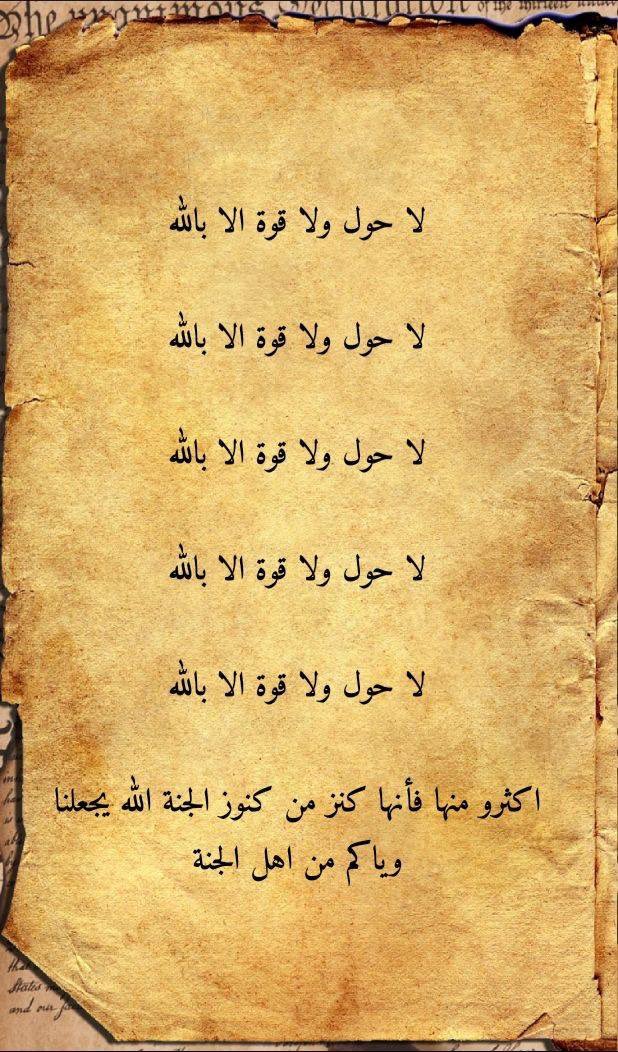 The unanimous Declaration of the thirteen united
لا حول ولا قوة الا بالله
لا حول ولا قوة الا بالله
لا حول ولا قوة الا بالله
لا حول ولا قوة الا بالله
لا حول ولا قوة الا بالله
اكثرو منها فأنها كنز من كنوز الجنة الله يجعلنا
وياكم من اهل الجنة
that
States
and our